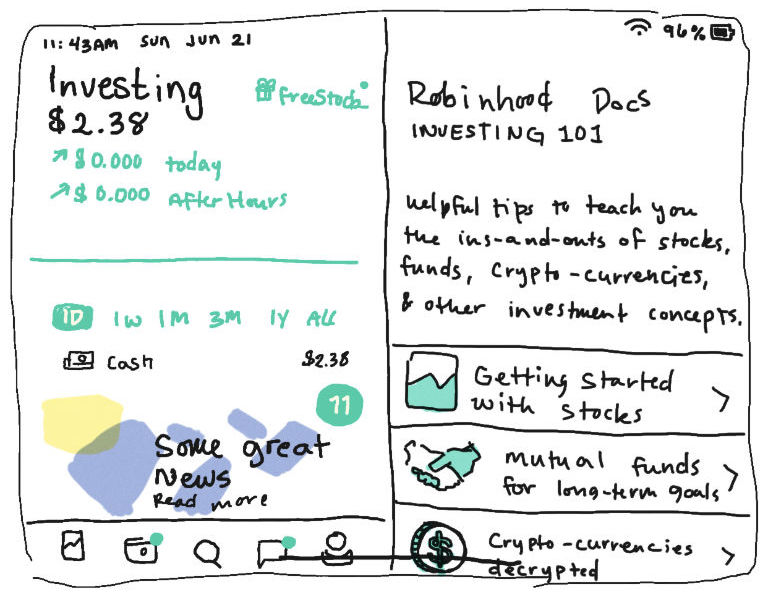 11:43AM Sun Jun 21
96%
Investing
$2.38
FreeStock
↗$0.000 today
↗$0.000 AfterHours
1D 1W 1M 3M 1Y ALL
Cash $2.38
11
Some great
News
Read more
Robinhood Docs
INVESTING 101
Helpful tips to teach you
the ins-and-outs of stocks,
funds, Crypto-currencies,
& other investment concepts.
Getting Started
with Stocks
Mutual funds
for long-term goals
$
Crypto-currencies
decrypted